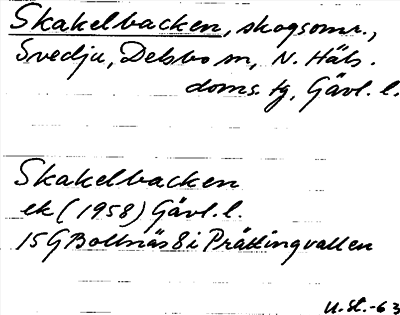 Skakelbacken, skogsomr.,
Svedja, Delsbo sn, N. Häls.
doms. tg, Gävl. l.
Skakelbacken
ek (1958) Gävl. l.
15G Bollnäs 8i Prästingvallen
U. St. -63